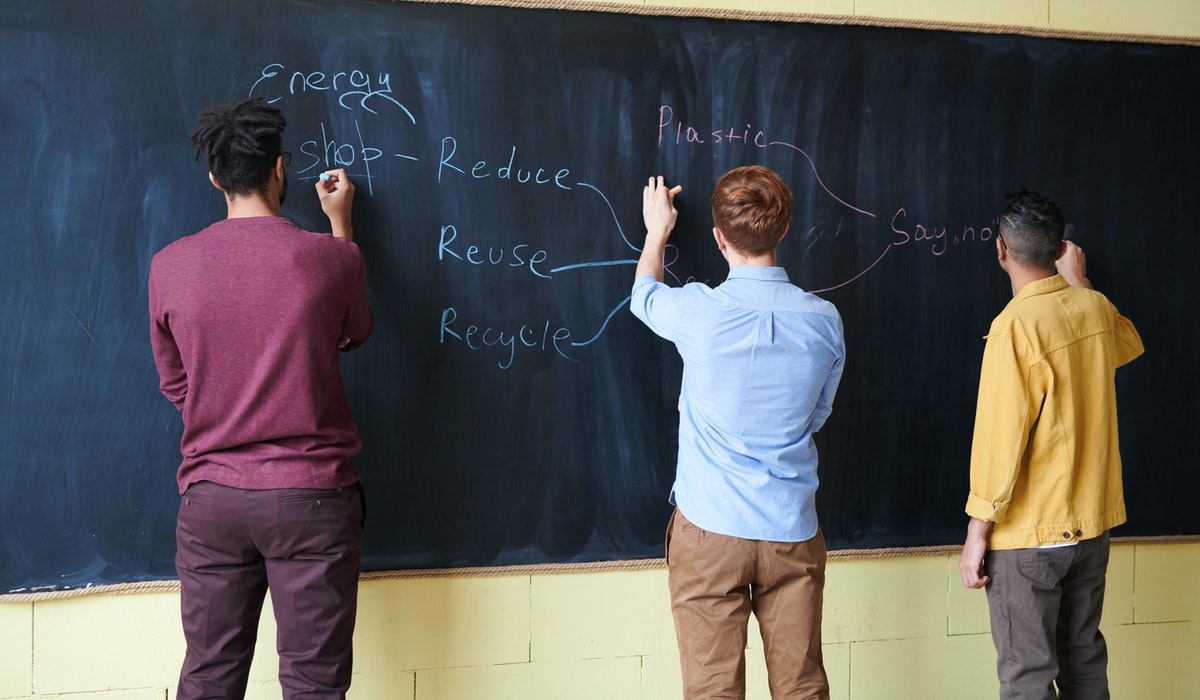 Energy
shop – Reduce
Reuse
Recycle
Plastic
Say „no